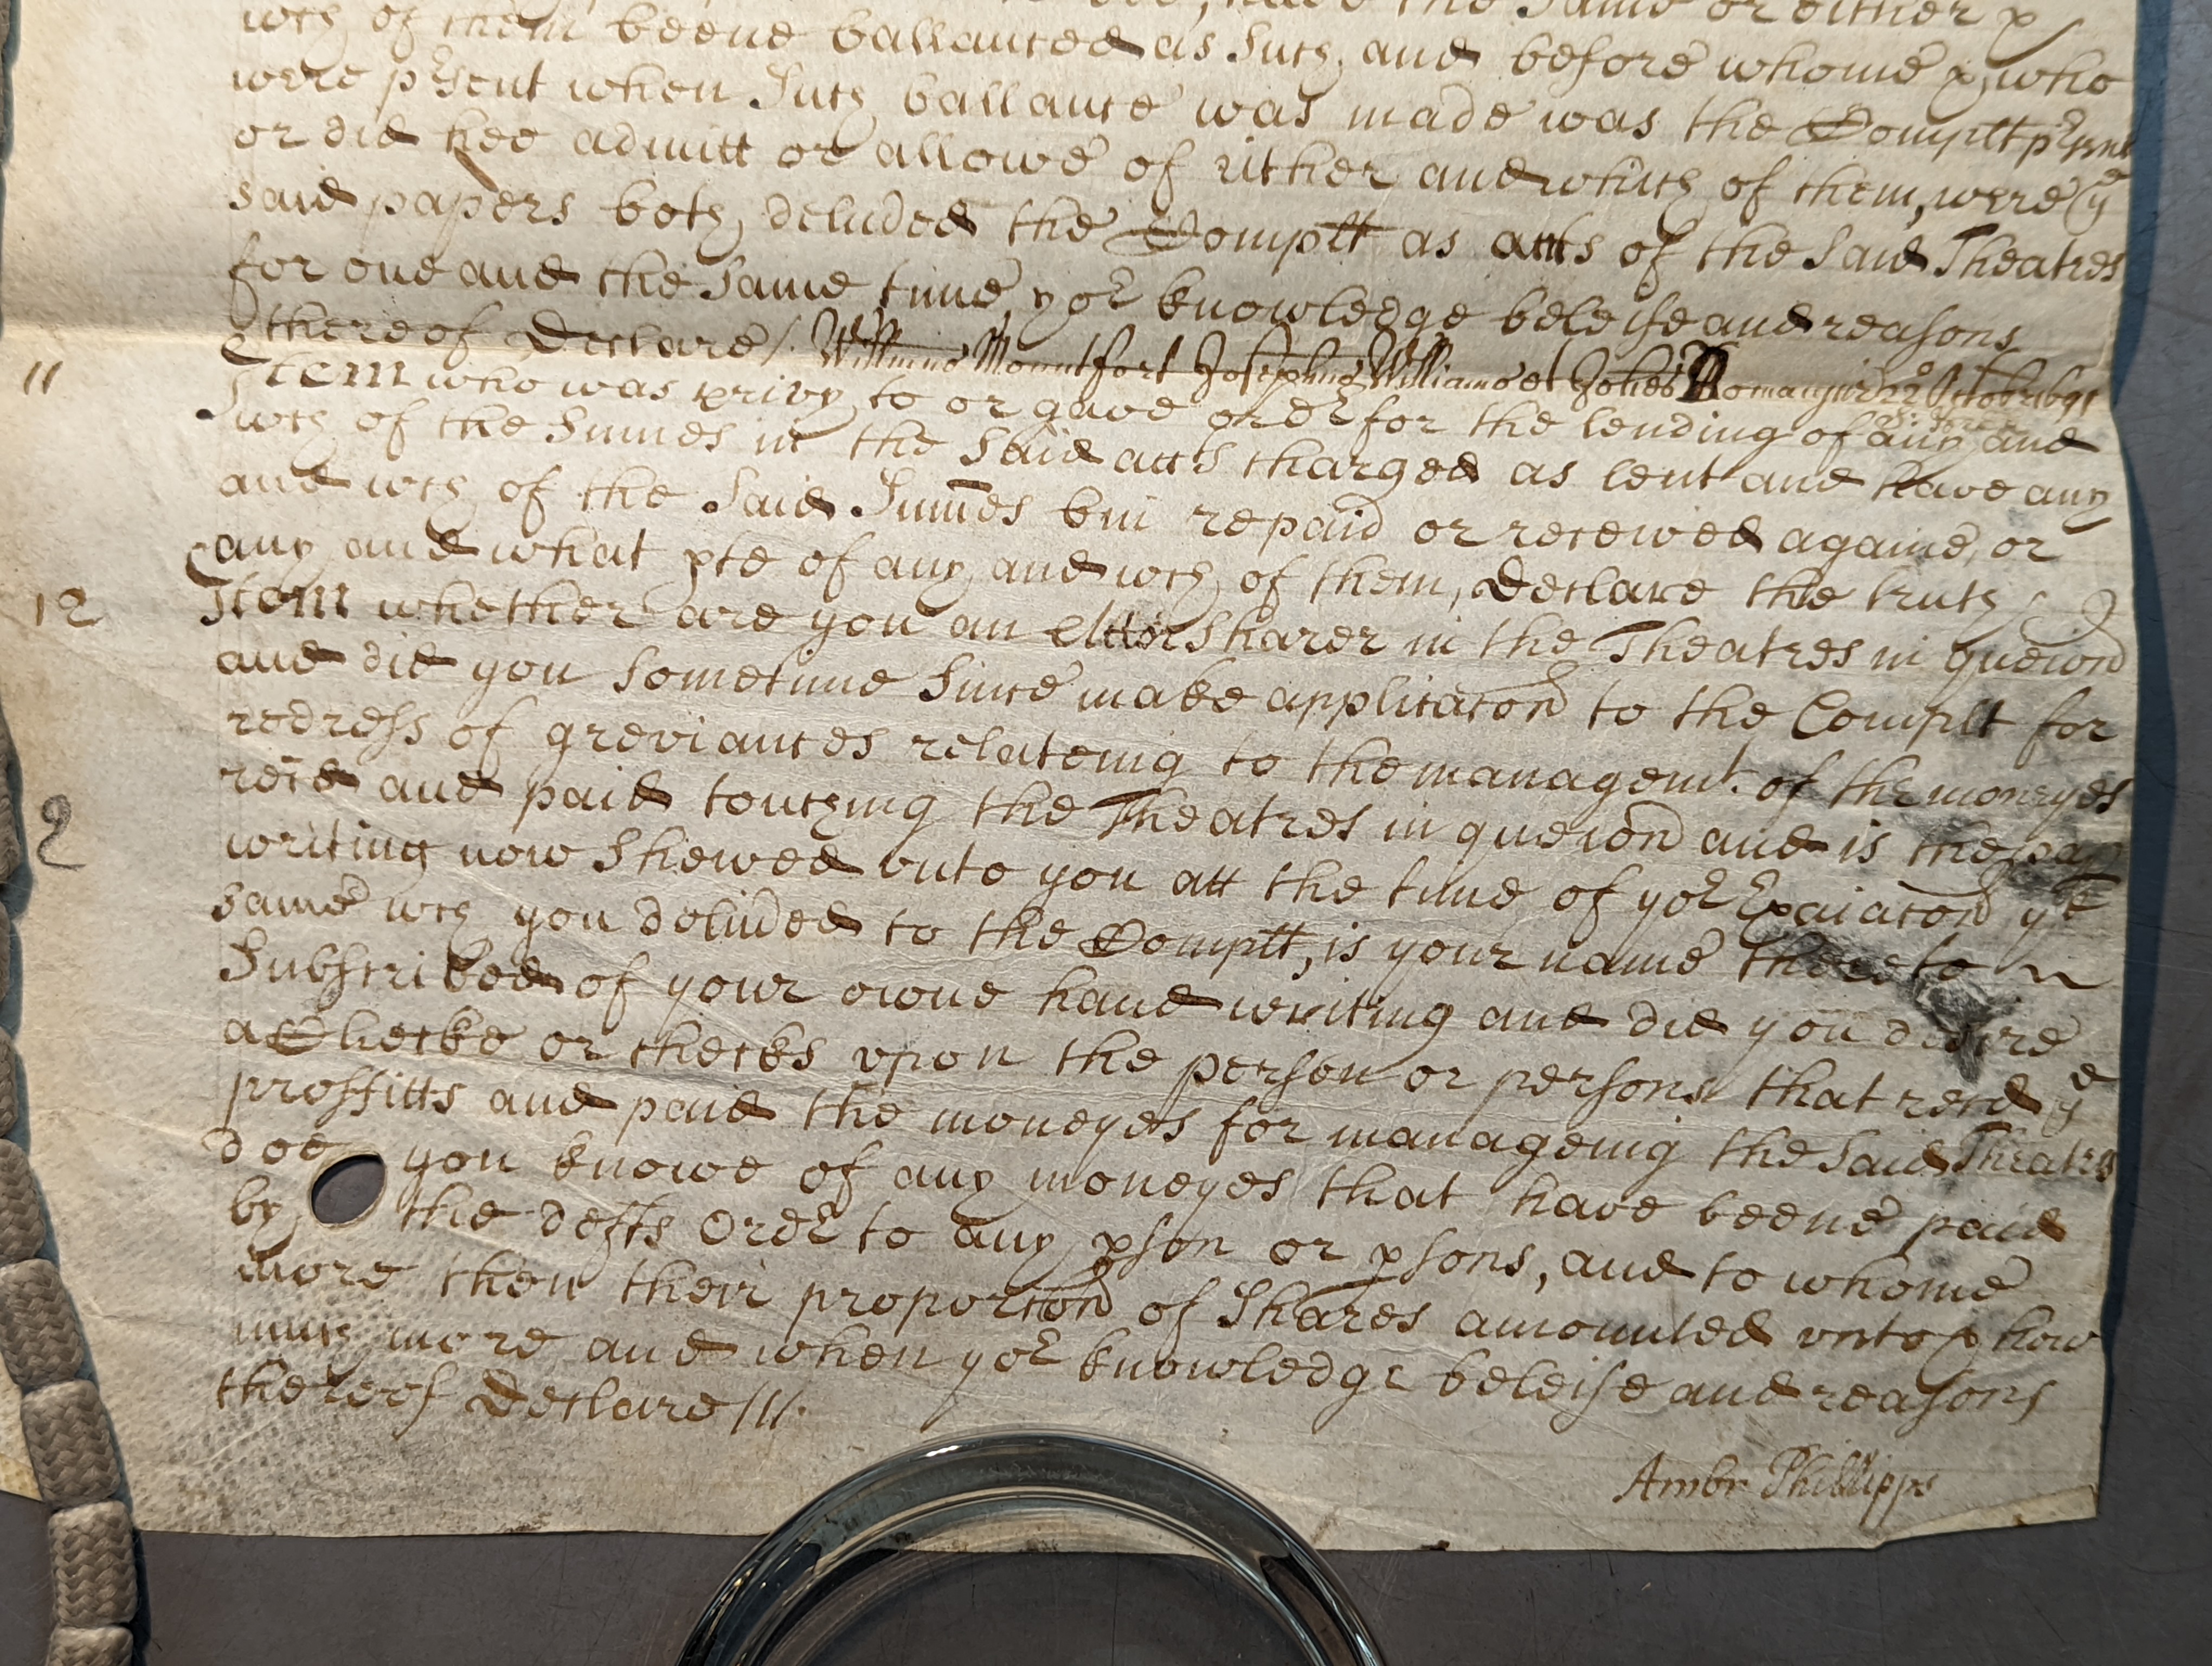 the same or either &
wch of them beene ballanced as Such, and before whome & who
were pʳsent when Such ballance was made was the Complt pʳsent
or did hee admitt or allowe of either and which of them, were yᵉ
said papers both deliũed the Complt as accts of the said Theatres
for one and the same time, yoʳ knowledge beleife and reasons
thereof Declare /. Willmus Mountfort Josephus Williams et Johes 22° Octobr 1691
11 Item who was privy to or gave ordʳ for the lending of any and
wch of the Sumes in the said accts charged as lent and have any
and wch of the said Sum̄es bin repaid or received againe, or
any and what pte of any and wch of them, Declare the truth /
12 Item whether are you an Sharer in the Theatres in queion
and did you sometime since make applicacon to the Complt for
redress of greviances relateing to the managemt. of the moneyes
recd and paid touching the Theatres in queion and is the pap
writing now shewed vnto you att the time of yoʳ Exaiacon yᵉ
same wch you deliũed to the Complt, is your name thereto
Subscribed of your owne hand writing and did you desire
a Checke or checks vpon the person or persons that recd yᵉ
proffitts and paid the moneyes for manageing the said Theatres
doe you knowe of any moneyes that have beene paid
by the defts Ordʳ to any pson or psons, and to whome
more then their proporcon of Shares amounted vnto & how
much more and when yoʳ knowledge beleife and reasons
thereof Declare ///.
Ambr Phillipps
2